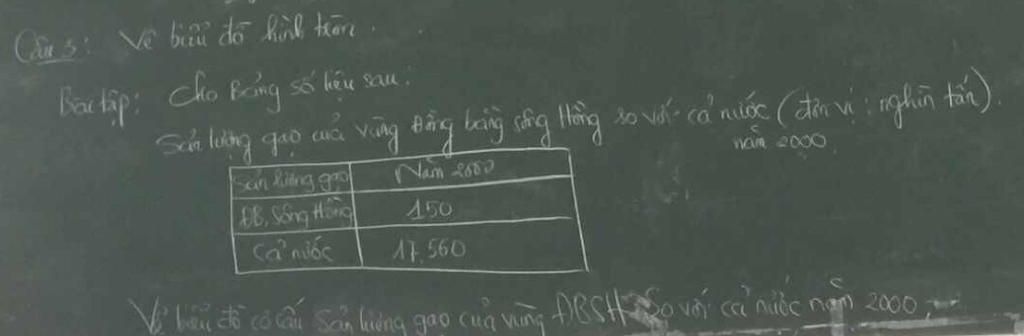 Câu 3: Vẽ biểu đồ hình tròn.
Bài tập: Cho Bảng số liệu sau:
Sản lượng gạo của vùng Đồng bằng sông Hồng so với cả nước (đơn vị: nghìn tấn).
năm 2000
Sản lượng gạo Năm 2000
ĐB. Sông Hồng 150
Cả nước 17.560
Vẽ biểu đồ cơ cấu sản lượng gạo của vùng ĐBSH so với cả nước năm 2000.